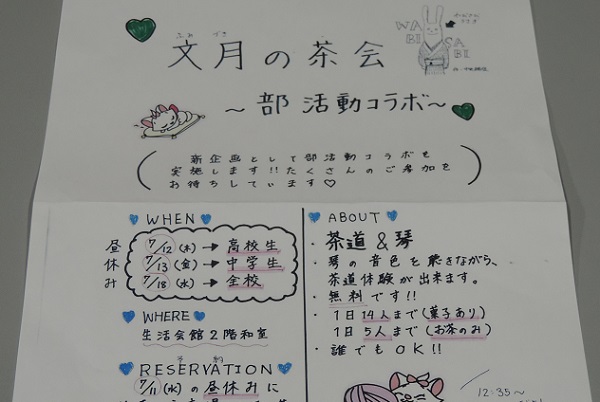 ふみ づき
文月の茶会
WABI
SABI
～部活動コラボ～
新企画として部活動コラボを
実施します!!たくさんのご参加を
お待ちしています♡
WHEN
昼休み
7/12(木)→高校生
7/13(金)→中学生
7/18(水)→全校
WHERE
生活会館2階和室
予約
RESERVATION
7/11(水)の昼休みに
ABOUT
・茶道&琴
・琴の音色を聴きながら、
茶道体験が出来ます。
・無料です!!
・1日14人まで(菓子あり)
1日5人まで(お茶のみ)
・誰でもOK!!
12:35～